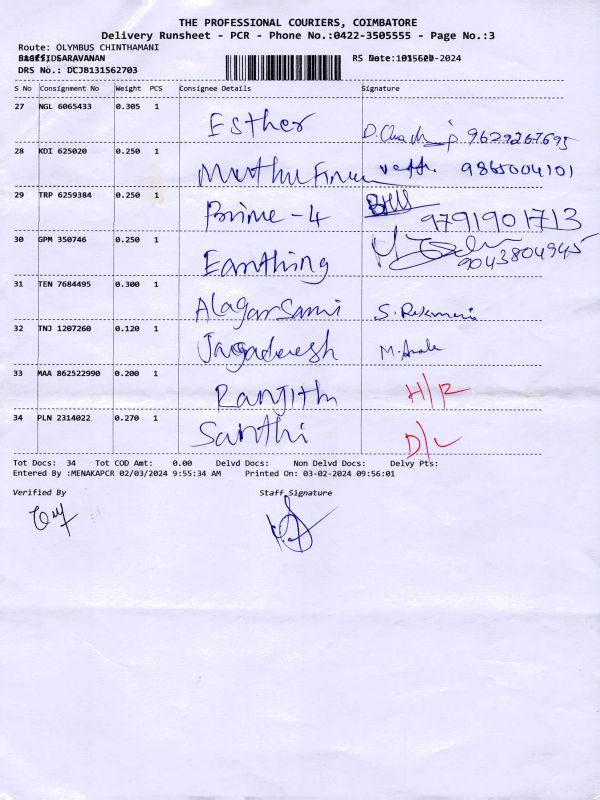 THE PROFESSIONAL COURIERS, COIMBATORE
Delivery Runsheet - PCR - Phone No.:0422-3505555 - Page No.:3
Route: OLYMBUS CHINTHAMANI
SARAVANAN RS Date:
DRS No.: DCJB131562703
S No Consignment No Weight PCS Consignee Details Signature
27 NGL 6065433 0.305 1 Esther 9629267695
28 KDI 625020 0.250 1 Muthu 9865004101
29 TRP 6259384 0.250 1 Prime-4 9791901713
30 GPM 350746 0.250 1 Earthing 9043804945
31 TEN 7684495 0.300 1 Alagar Sami S.
32 TNJ 1207260 0.120 1 Jagadeesh M.
33 MAA 862522990 0.200 1 Ranjith H/R
34 PLN 2314022 0.270 1 Santhi D/L
Tot Docs: 34 Tot COD Amt: 0.00 Delvd Docs: Non Delvd Docs: Delvy Pts:
Entered By :MENAKAPCR 02/03/2024 9:55:34 AM Printed On: 03-02-2024 09:56:01
Verified By Staff Signature